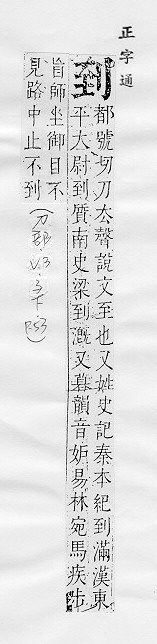 正字通
到
都號切刀厺聲說文至也又姓史記秦本紀到滿漢東
平大尉到質南史梁到漑又暮韻音妒易林宛馬疾步
盲師坐御目不
見路中止不到
(刀部 V.3 P53)